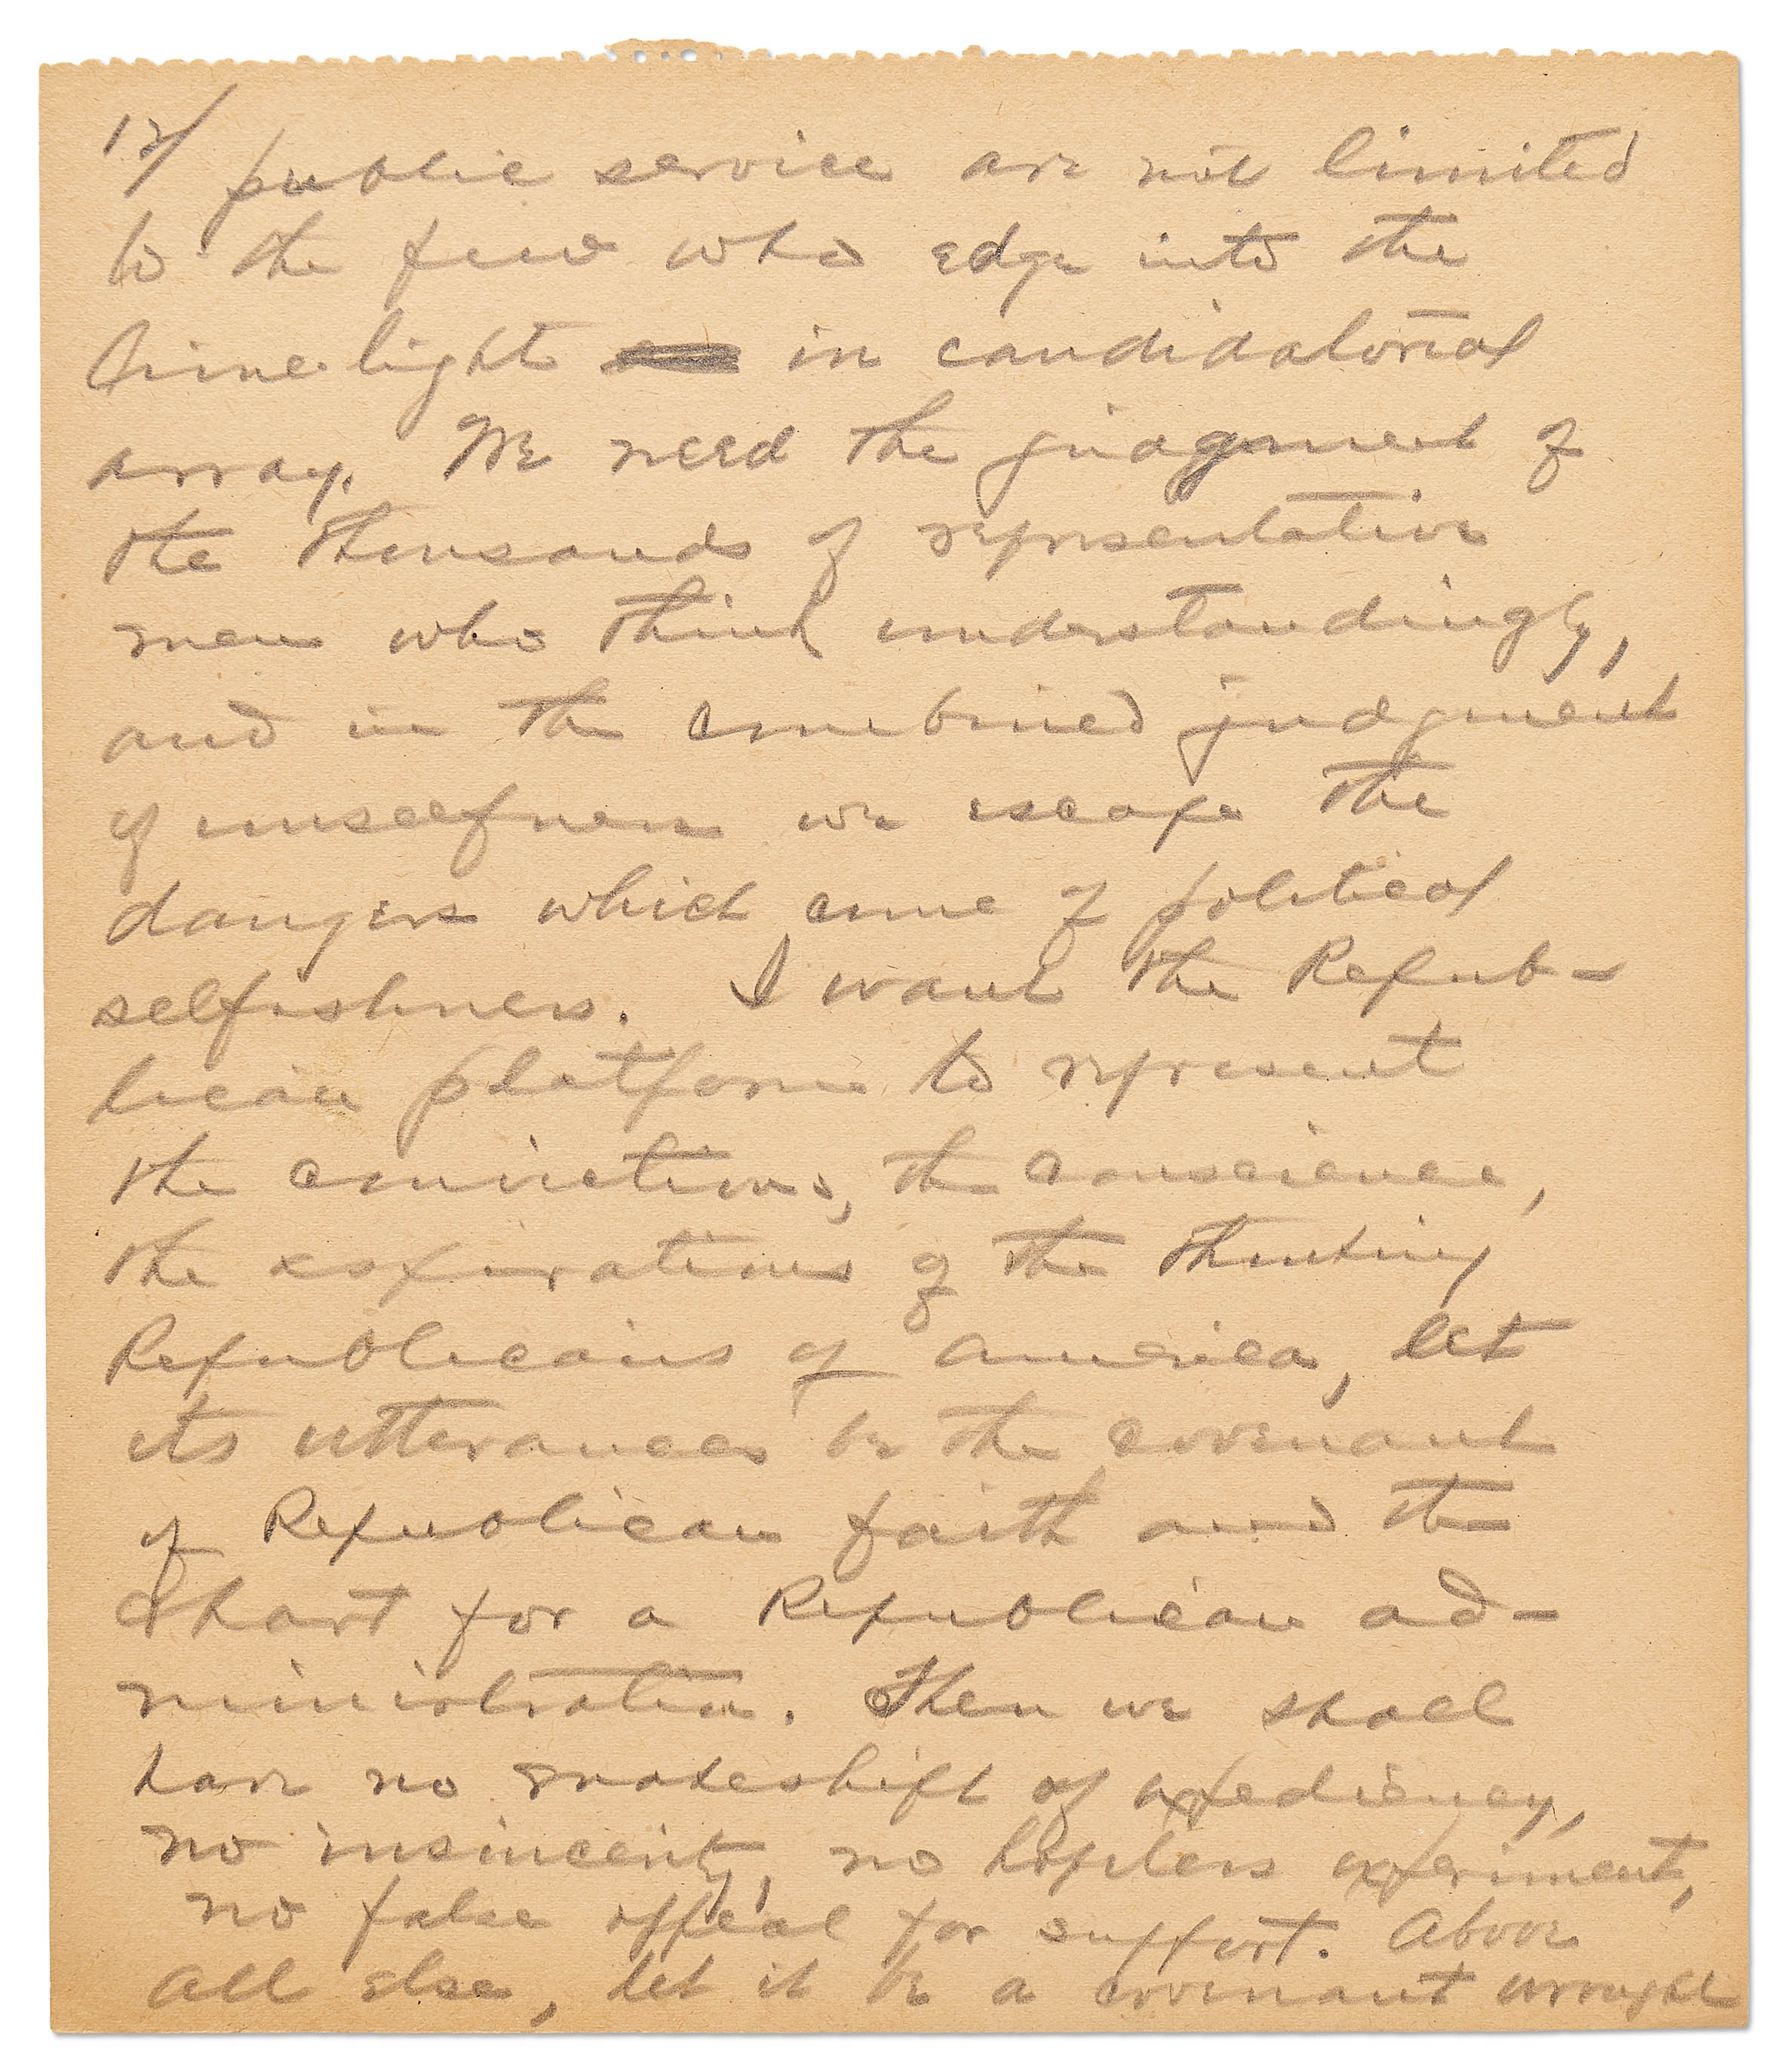 12/ public service are not limited
to the few who edge into the
lime light in candidatorial
array. We need the judgment of
the thousands of representative
men who think understandingly,
and in the combined judgment
of unselfness we escape the
dangers which come of political
selfishness. I want the Repub-
lican platform to represent
the convictions, the conscience,
the aspirations of the thinking
Republicans of America, let
its utterances be the covenant
of Republican faith and the
chart for a Republican ad-
ministration. Then we shall
have no makeshift of expediency,
no insincerity, no hopeless experiment,
no false appeal for support. Above
all else, let it be a covenant wrought